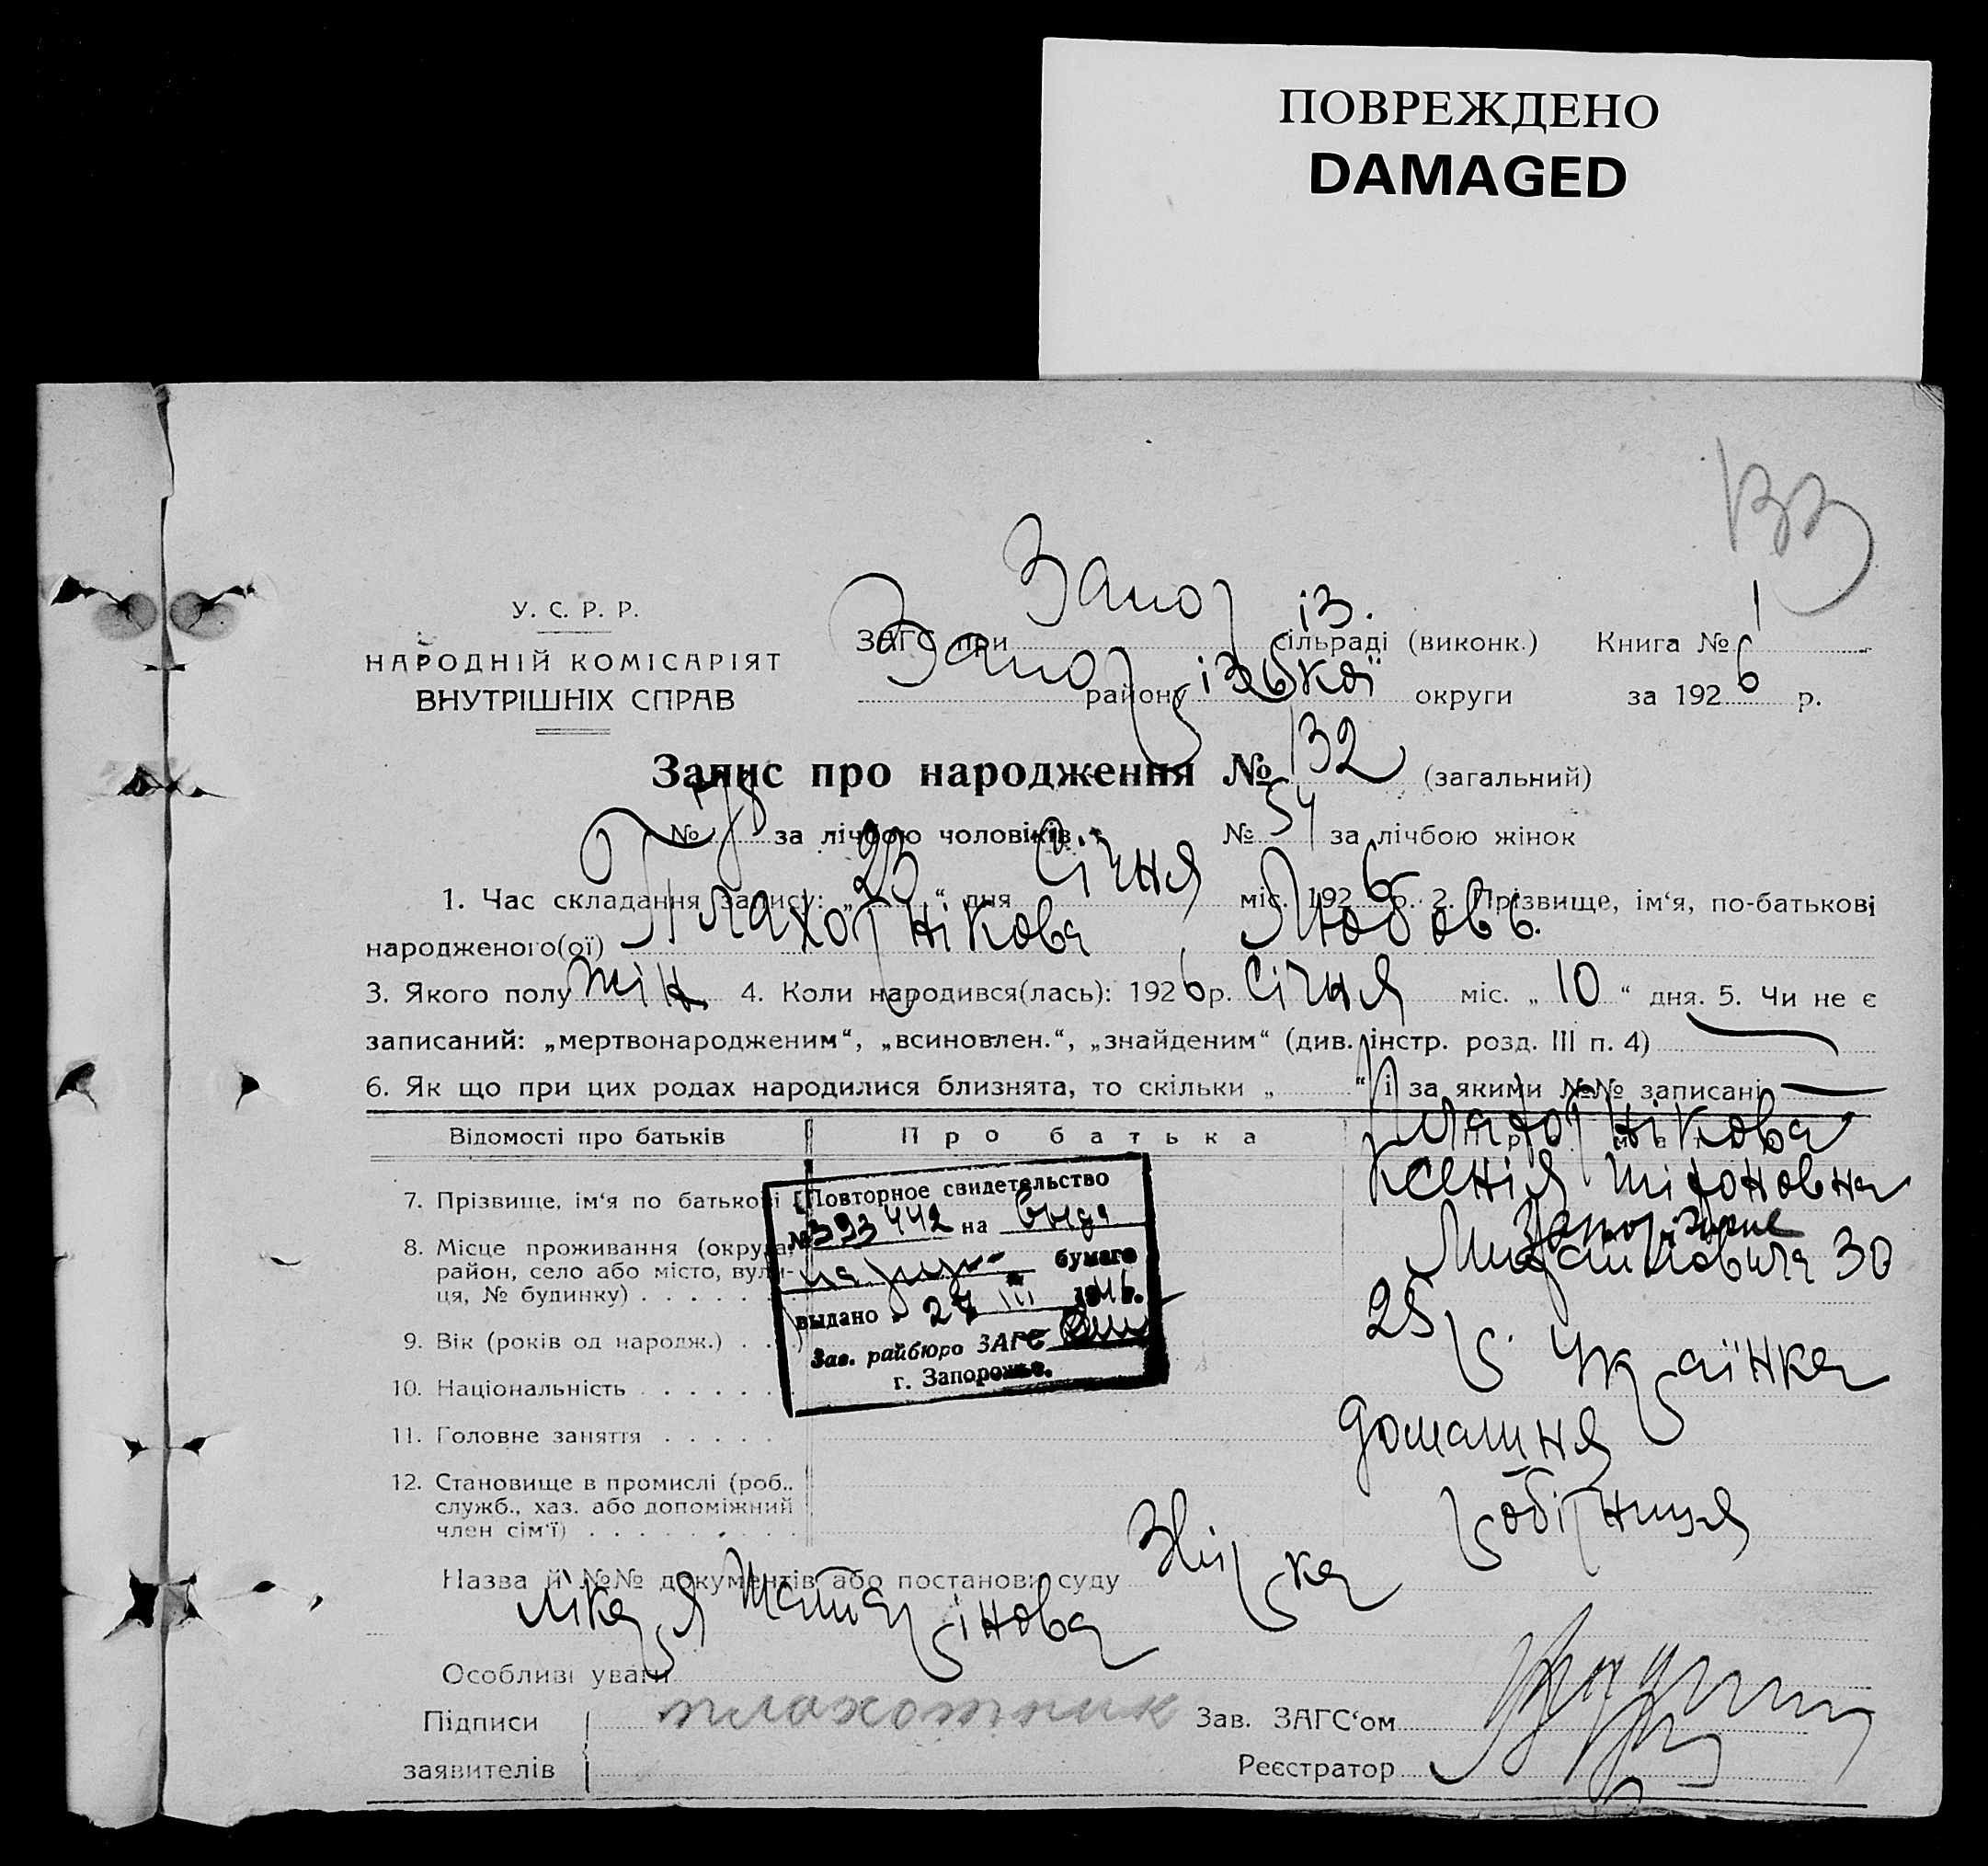 ПОВРЕЖДЕНО
DAMAGED
133
У. С. Р. Р.
НАРОДНІЙ КОМІСАРІЯТ
ВНУТРІШНІХ СПРАВ
ЗАГС при Запоріз. сільраді (виконк.) Книга № 1
Запорізької району округи за 1926 р.
Запис про народження № 132 (загальний)
№ 78 за лічбою чоловіків № 54 за лічбою жінок
1. Час складання запису: „23“ дня Січня міс. 1926 р. 2. Прізвище, ім‘я, по-батькові
народженого(ої) Плахотнікова Любовь.
3. Якого полу жін. 4. Коли народився(лась): 1926 р. Січня міс. „10“ дня. 5. Чи не є
записаний: „мертвонародженим“, „всиновлен.“, „знайденим“ (див. інстр. розд. III п. 4)
6. Як що при цих родах народилися близнята, то скільки „ “ і за якими №№ записані
Відомості про батьків Про батька
7. Прізвище, ім‘я по батькові Плахотнікова
Ксенія Тіхоновна
8. Місце проживання (округа,
район, село або місто, вули-
ця, № будинку) Запоріжжє
30
9. Вік (років од народж.) 25 р.
10. Національність Українка
11. Головне заняття домашня
12. Становище в промислі (роб.,
служб., хаз. або допоміжний
член сім‘ї) робітниця
Повторное свидетельство
№ 393442 на
бумаге
выдано 27 III 1946.
Зав. райбюро ЗАГС
г. Запорожье.
Назва й №№ документів або постанови суду
лікаря
Особливі уваги
Підписи плахотник Зав. ЗАГС‘ом
заявителів Реєстратор